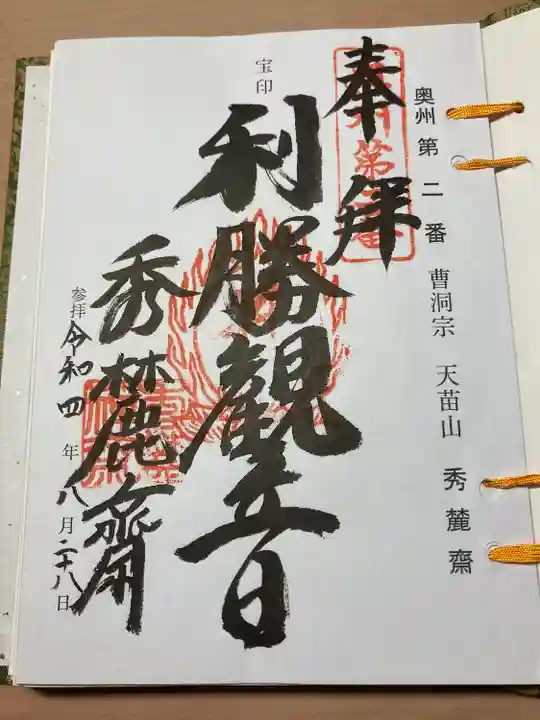 奥州第二番 曹洞宗 天苗山 秀麓齋
奉拝
宝印
利勝観立日
秀麓齋
参拝 令和四年八月二十八日